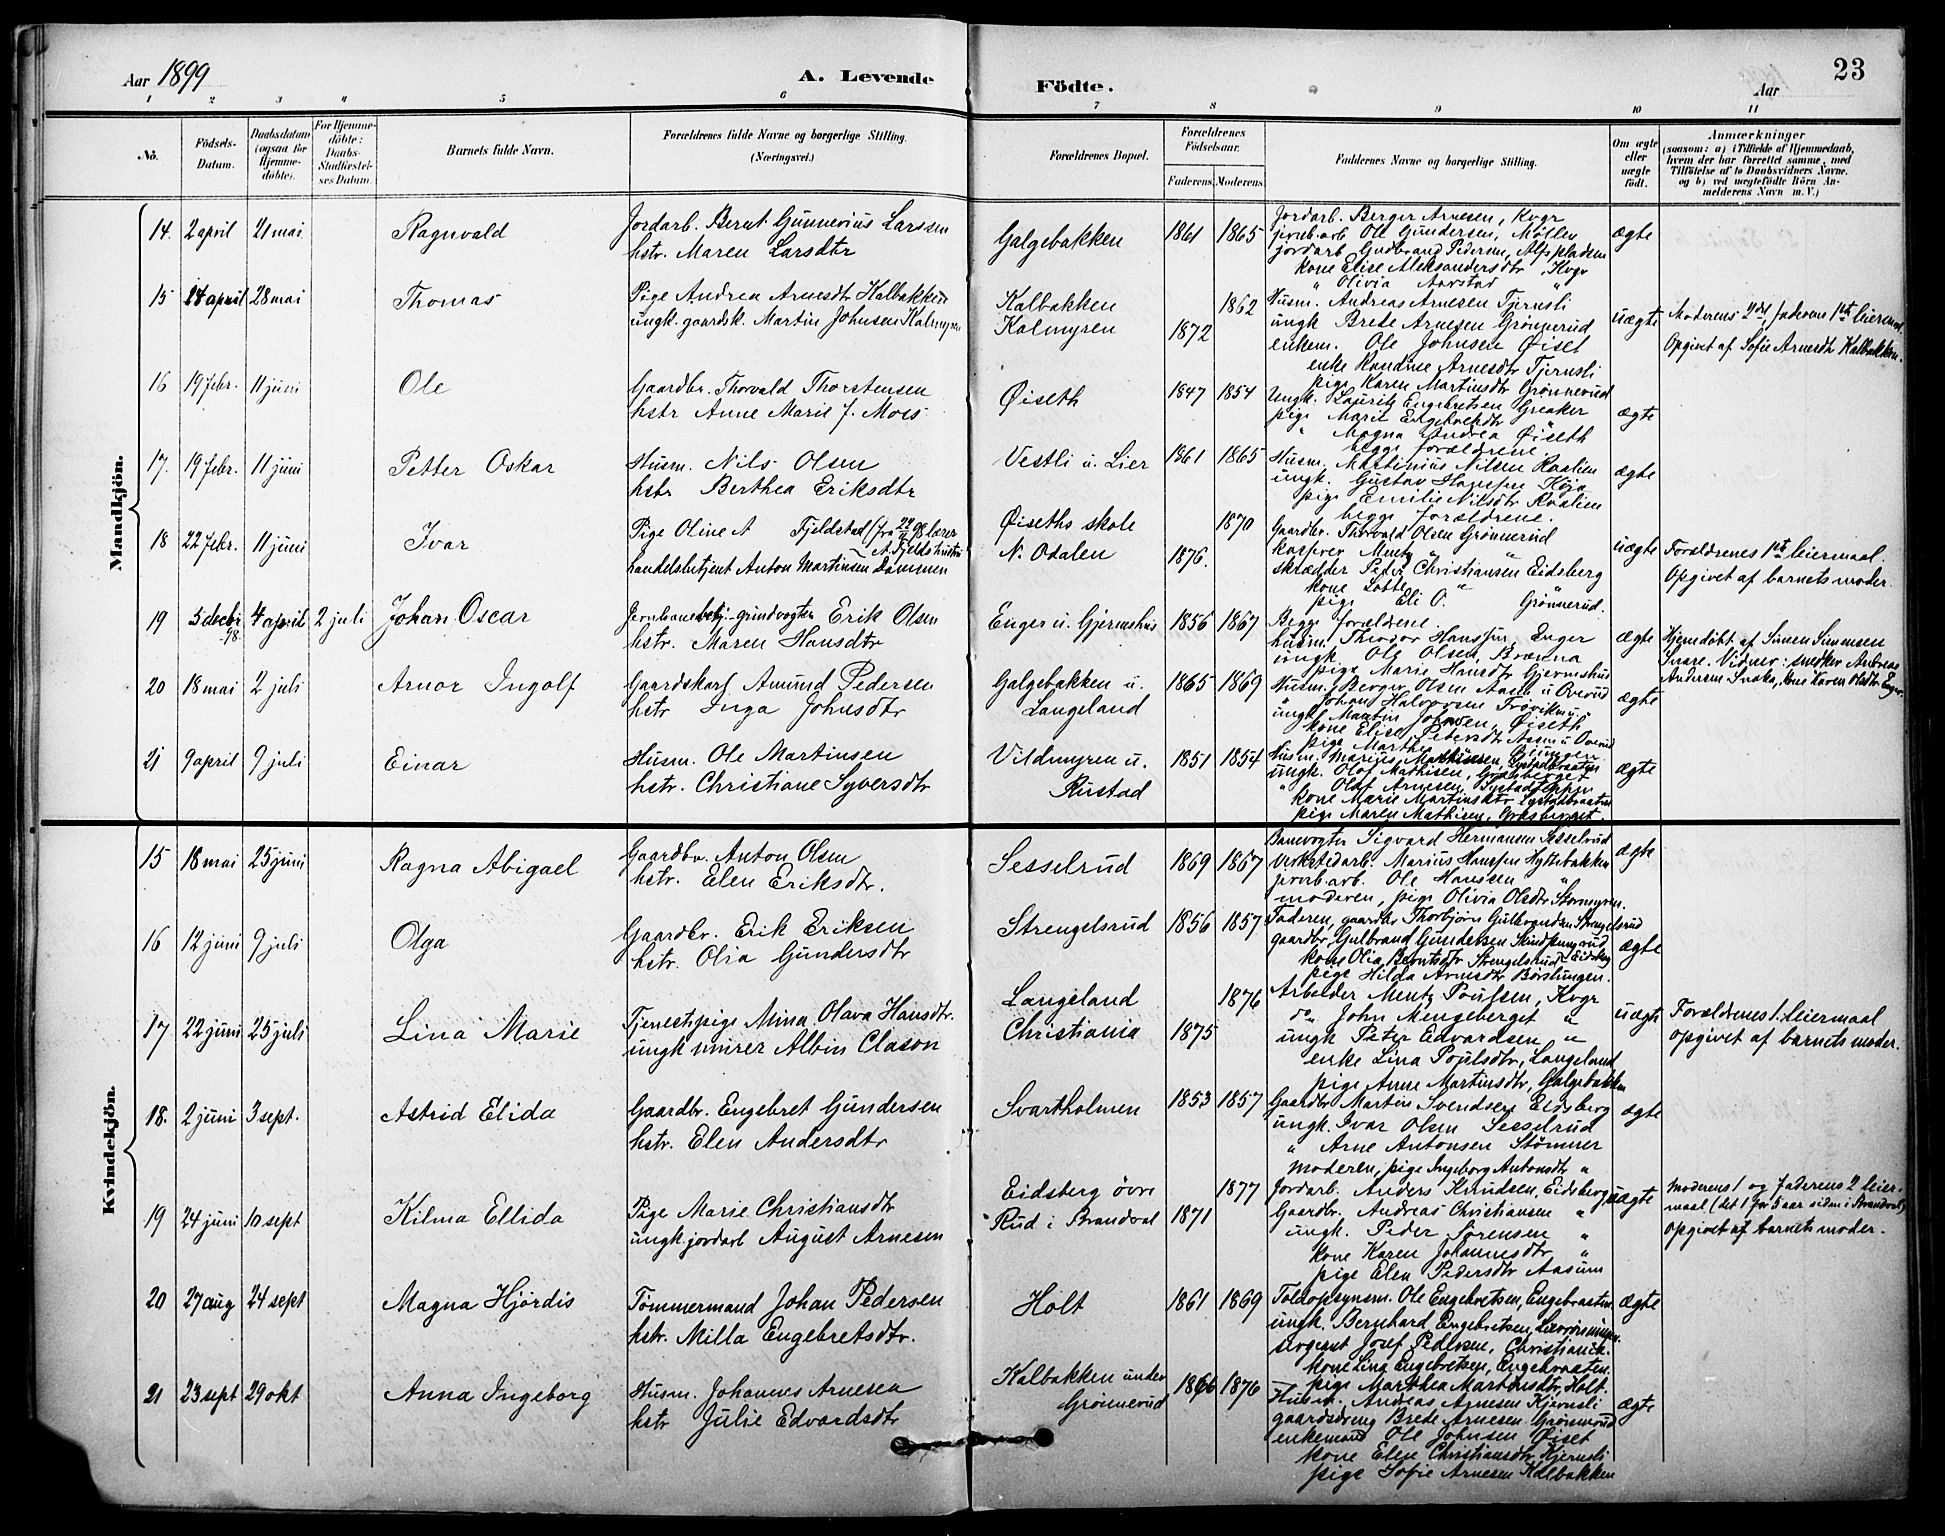 Aar 1899
A. Levende
Födte.
Aar
23
1 2 3 4 5 6 7 8 9 10 11
No.
Födsels-Datum.
Daabsdatum (ogsaa for Hjemme-döbte).
For Hjemme-döbte: Daabs-Stadfæstel-ses Datum.
Barnets fulde Navn.
Forældrenes fulde Navne og borgerlige Stilling. (Næringsvei.)
Forældrenes Bopæl.
Forældrenes Födselsaar.
Faderens. Moderens.
Faddernes Navne og borgerlige Stilling.
Om ægte eller uægte födt.
Anmærkninger
(saasom: a) i Tilfælde af Hjemmedaab, hvem der har forrettet samme, med Tilföielse af to Daabsvidners Navne. og b) ved uægtefödte Börn An-melderens Navn m. V.)
Mandkjön.
14. 2 april 21 mai Ragnvald
Jordarb. Bernt Gunnerius Larssen
hstr. Maren Larsdtr
Galgebakken 1861 1865
Jordarb. Berger Arnesen, Kvgr
jernb.arb Ole Gundersen, Møllen
jordarb Gudbrand Pedersen, Alfspladsen
kone Elise Aleksandersdtr Kvgr
" Olivia Aarstad "
ægte
15 14 april 28 mai Thomas
Pige Andrea Arnesdtr Kalbakken
ungk. gaardsk. Martin Johnsen Kalmyren
Kalbakken 1862
Kalmyren 1872
Husm. Andreas Arnesen Tjernsli
ungk Brede Arnesen Grønnerud
enkem. Ole Johnsen Øiset
enke Randine Arnesdtr Tjernsli
pige Karen Martinsdtr Grønnerud
uægte
Moderens 2det, faderens 1ste leiermaal.
Opgivet af Sofie Arnesdtr Kalbakken.
16 19 febr. 11 juni Ole
Gaardbr. Thorvald Thorstensen
hstr Anne Marie J. Moes
Øiseth 1847 1854
Ungk. Lauritz Engebretsen Greaker
pige Marie Engebretsdtr "
" Magna Andrea Øiseth
begge forældrene.
ægte
17. 19 febr. 11 juni Petter Oskar
Husm. Nils Olsen
hstr Berthea Eriksdtr
Vestli u. Lier 1861 1865
Husm. Martinius Nilsen Raalien
ungk. Gustav Hanssen Koja
pige Emilie Nilsdtr Raalien
begge forældrene.
ægte
18 22 febr. 11 juni Ivar
Pige Oline A Fjeldstad (fra 22/11 98 lærer
A. Fjelds hustru
handelsbetjent Anton Martinsen Dammen
Øiseths skole 1870
N. Odalen 1876.
Gaardbr. Thorvald Olsen Grønnerud
Mentz " "
skrædder Peder Christiansen Eidsberg
kone Lotte "
pige Eli O. Grønnerud.
uægte
Forældrenes 1ste leiermaal.
Opgivet af barnets moder.
19 5 decbr 98. 4 april 2 juli Johan Oscar
Jernbanebetj.-grindvogter Erik Olsen
hstr. Maren Hansdtr
Enger u. Gjermshus 1856 1867
Begge forældrene.
husm. Theodor Hanssen, Enger
ungk Ole Olsen, Brænna
pige Marie Hansdtr Gjermshus
ægte
Hjemdøbt af Simen Simensen
Snare. Vidner: snedker Andreas
Andersen Snake, kone Karen Olsdtr Enger.
20 18 mai 2 juli Arnor Ingolf
Gaardskarl Amund Pedersen
hstr Inga Johnsdtr
Galgebakken u.
Langeland 1865 1869
Husm. Berger Olsen Aasen u Overud
" Johan Halvorsen
ungk Martin Johnsen, Øiseth
kone Elise Pedersdtr Aasen u Overud
pige Marthe
ægte
21 9 april 9 juli Einar
Husm. Ole Martinsen
hstr. Christiane Syversdtr
Vildmyren u.
Rustad 1851 1854
Husm. Marius
ungk. Olaf Mathisen, Gråsberget
" Olaf Arnesen,
kone Marie Martinsdtr
pige Maren Mathisen, Gråsberget.
ægte
Kvindekjön.
15 18 mai 25 juni Ragna Abigael
Gaardbr. Anton Olsen
hstr. Elen Eriksdtr.
Sesselrud 1869 1867
Banevogter Sigvard Hermansen Sesselrud
verkstedarb. Marius Hanssen Hyttebakken
jernb.arb. Ole Hansen "
moderen, pige Olivia Olsdtr Stormyren.
ægte
16 12 juni 9 juli Olga
Gaardbr. Erik Eriksen
hstr. Olia Gundersdtr
Strengelsrud 1856 1857
Faderen, gaardbr Thorbjørn Gulbrandsen Strengelsrud
gaardbr. Gulbrand Gundersen Skindpungrud
kone Olia Berntsdtr Strengelsrud
pige Hilda Arnesdtr Børslungen.
ægte
17 22 juni 25 juli Lina Marie
Tjenestepige Mina Olava Hansdtr.
ungk murer Albin Clason
Langeland 1876
Christiania 1875
Arbeider Mentz Poulsen, Kvgr
do John Mengeberget "
ungk Peter Edvardsen "
enke Lina Poulsdtr, Langeland
pige Anne Martinsdtr, Galgebakken
uægte
Forældrenes 1. leiermaal
opgivet af barnets moder.
18. 2 juni 3 sept. Astrid Elida
Gaardbr. Engebret Gundersen
hstr. Elen Andersdtr
Svartholmen 1853 1857
Gaardbr Martin Svendsen Eidsberg
ungk. Ivar Olsen Sesselrud
" Arne Antonsen Stømner
Moderen, pige Ingeborg Antonsdtr "
ægte
19 24 juni 10 sept Kilma Ellida
Pige Marie Christiansdtr
ungk. jordarb August Arnesen
Eidsberg øvre 1877
Rud i Brandval 1871
Jordarb. Anders Knudsen, Eidsberg
Gaardbr. Andreas Christiansen "
ungk. Peder Sørensen "
kone Karen Johannesdtr "
pige Elen Pedersdtr Aasum
uægte
Moderens 1 og faderens 2 leier-
maal (det 1 for 5 aar siden i Brandval)
opgivet af barnets moder.
20 27 aug 24 sept Magna Hjørdis
Tømmermand Johan Pedersen
hstr. Milla Engebretsdtr.
Holt 1861 1869
Toldopsynsm. Ole Engebretsen, Engebraaten
ungk. Bernhard Engebretsen,
sergeant Josef Pedersen, Christiania.
kone Lina Engebretsen, Engebraaten
pige Marthea Martinsdtr, Holt.
ægte
21 23 sept 29 okt Anna Ingeborg
Husm. Johannes Arnesen
hstr Julie Edvardsdtr
Kalbakken under
Grønnerud 1866 1876
Husm. Andreas Arnesen Kjernsli
gaardsdreng Brede Arnesen Grønnerud
enkemand Ole Johnsen Øiset
kone Elen Christiansdtr, Kjernsli
pige Sofie Arnesen Kalbakken
ægte